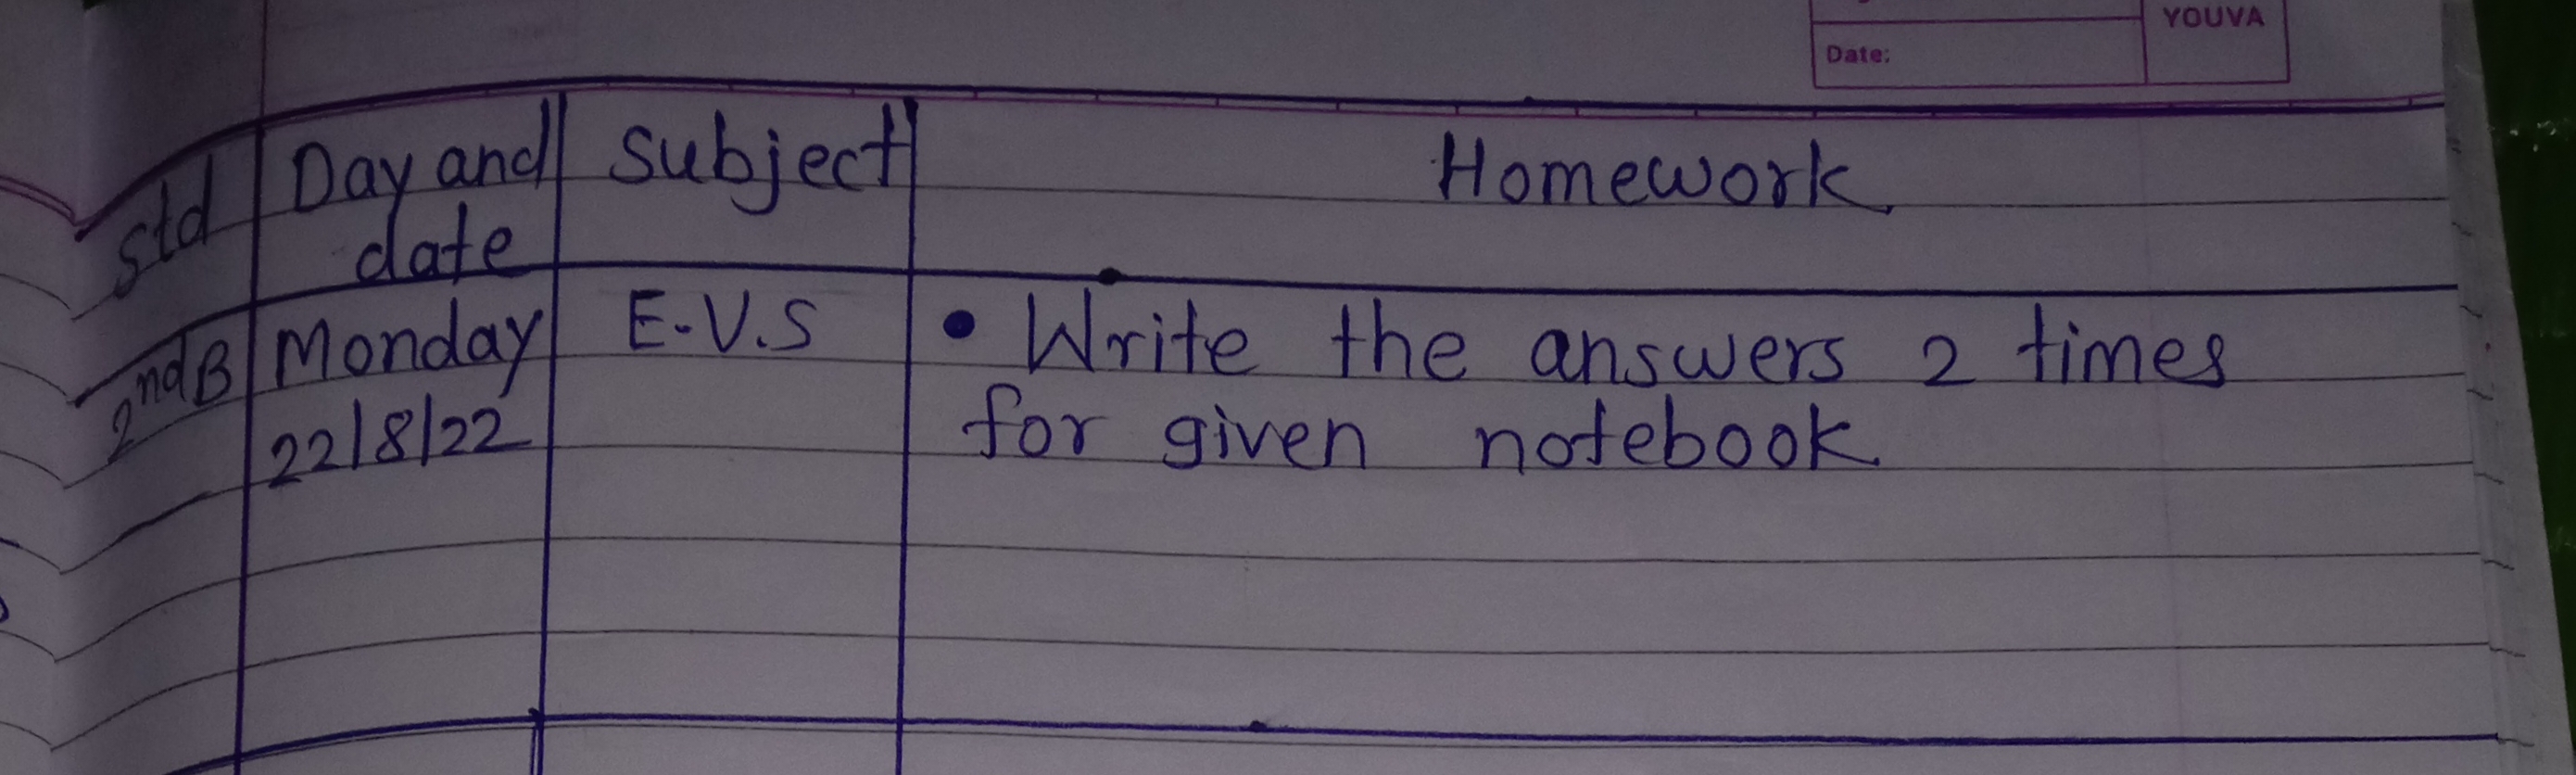 YOUVA
Date:
Std | Day and date | Subject | Homework
2nd B | Monday | E.V.S | • Write the answers 2 times
22/8/22 | for given notebook